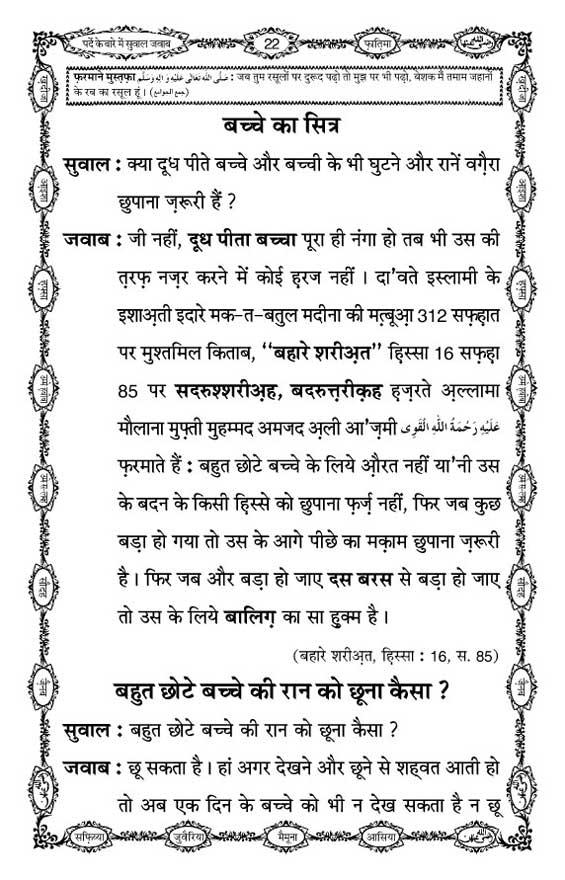 पर्दे के बारे में सुवाल जवाब
22
फ़ातिमा
फ़रमाने मुस्तफ़ा صَلَّى اللهُ تَعَالٰى عَلَيْهِ وَاٰلِهٖ وَسَلَّم : जब तुम रसूलों पर दुरूद पढ़ो तो मुझ पर भी पढ़ो, बेशक मैं तमाम जहानों
के रब का रसूल हूं । (جمع الجوامع)
बच्चे का सित्र
सुवाल : क्या दूध पीते बच्चे और बच्ची के भी घुटने और रानें वग़ैरा
छुपाना ज़रूरी हैं ?
जवाब : जी नहीं, दूध पीता बच्चा पूरा ही नंगा हो तब भी उस की
त़रफ़ नज़र करने में कोई ह़रज नहीं । दा'वते इस्लामी के
इशाअ़ती इदारे मक-त-बतुल मदीना की मत़्बूआ़ 312 सफ़ह़ात
पर मुश्तमिल किताब, ‘‘बहारे शरीअ़त’’ ह़िस्सा 16 सफ़ह़ा
85 पर सदरुश्शरीअ़ह, बदरुत़्त़रीक़ह ह़ज़रते अ़ल्लामा
मौलाना मुफ़्ती मुह़म्मद अमजद अ़ली आ'ज़मी عَلَيْهِ رَحْمَةُ اللهِ الْقَوِى
फ़रमाते हैं : बहुत छोटे बच्चे के लिये औ़रत नहीं या'नी उस
के बदन के किसी ह़िस्से को छुपाना फ़र्ज़ नहीं, फिर जब कुछ
बड़ा हो गया तो उस के आगे पीछे का मक़ाम छुपाना ज़रूरी
है । फिर जब और बड़ा हो जाए दस बरस से बड़ा हो जाए
तो उस के लिये बालिग़ का सा हुक्म है ।
(बहारे शरीअ़त, ह़िस्सा : 16, स. 85)
बहुत छोटे बच्चे की रान को छूना कैसा ?
सुवाल : बहुत छोटे बच्चे की रान को छूना कैसा ?
जवाब : छू सकता है । हां अगर देखने और छूने से शह्वत आती हो
तो अब एक दिन के बच्चे को भी न देख सकता है न छू
सफ़िय्या
जुवैरिया
मैमूना
आसिया